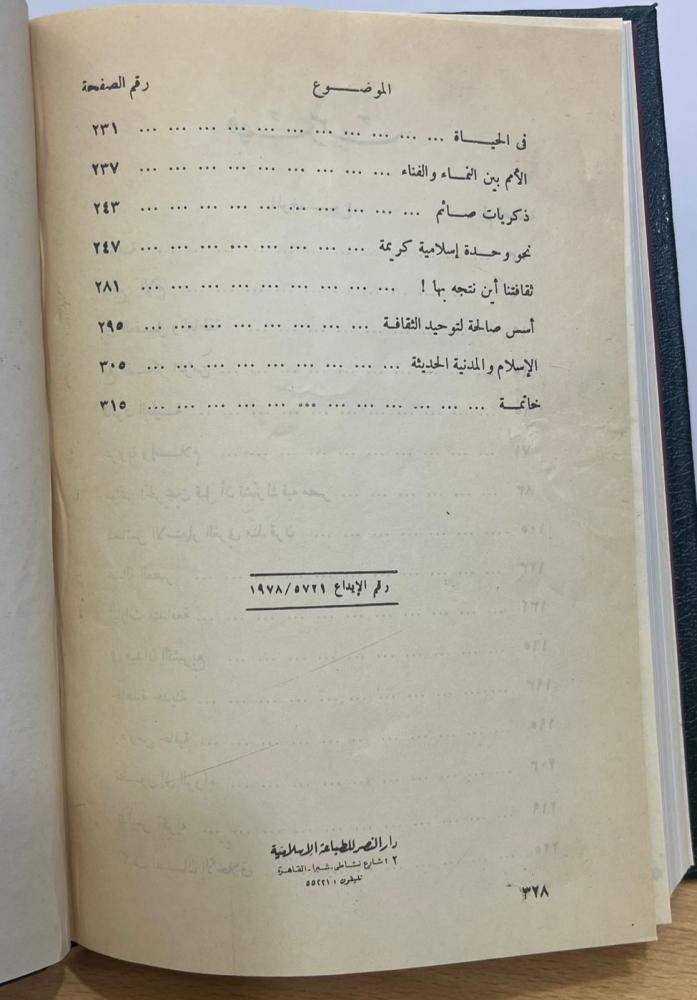 الموضــــوع رقم الصفحة
فى الحيــــاة ... ... ... ... ... ... ... ... ... ... ... ٢٣١
الأمم بين النمــاء والفناء ... ... ... ... ... ... ... ... ... ٢٣٧
ذكريات صــائم ... ... ... ... ... ... ... ... ... ... ٢٤٣
نحو وحــدة إسلامية كريمة ... ... ... ... ... ... ... ... ٢٤٧
ثقافتنا أين نتجه بها ! ... ... ... ... ... ... ... ... ... ٢٨١
أسس صالحة لتوحيد الثقافــة ... ... ... ... ... ... ... ... ٢٩٥
الإسلام والمدنية الحديثة ... ... ... ... ... ... ... ... ... ... ٣٠٥
خاتمــة ... ... ... ... ... ... ... ... ... ... ... ... ٣١٥
رقم الإيداع ١٩٧٨/٥٧٢١
دار النصر للطباعة الإسلامية
٢ شارع نشاطى - شبرا - القاهرة
تليفون : ٥٥٢٢١
٣٢٨